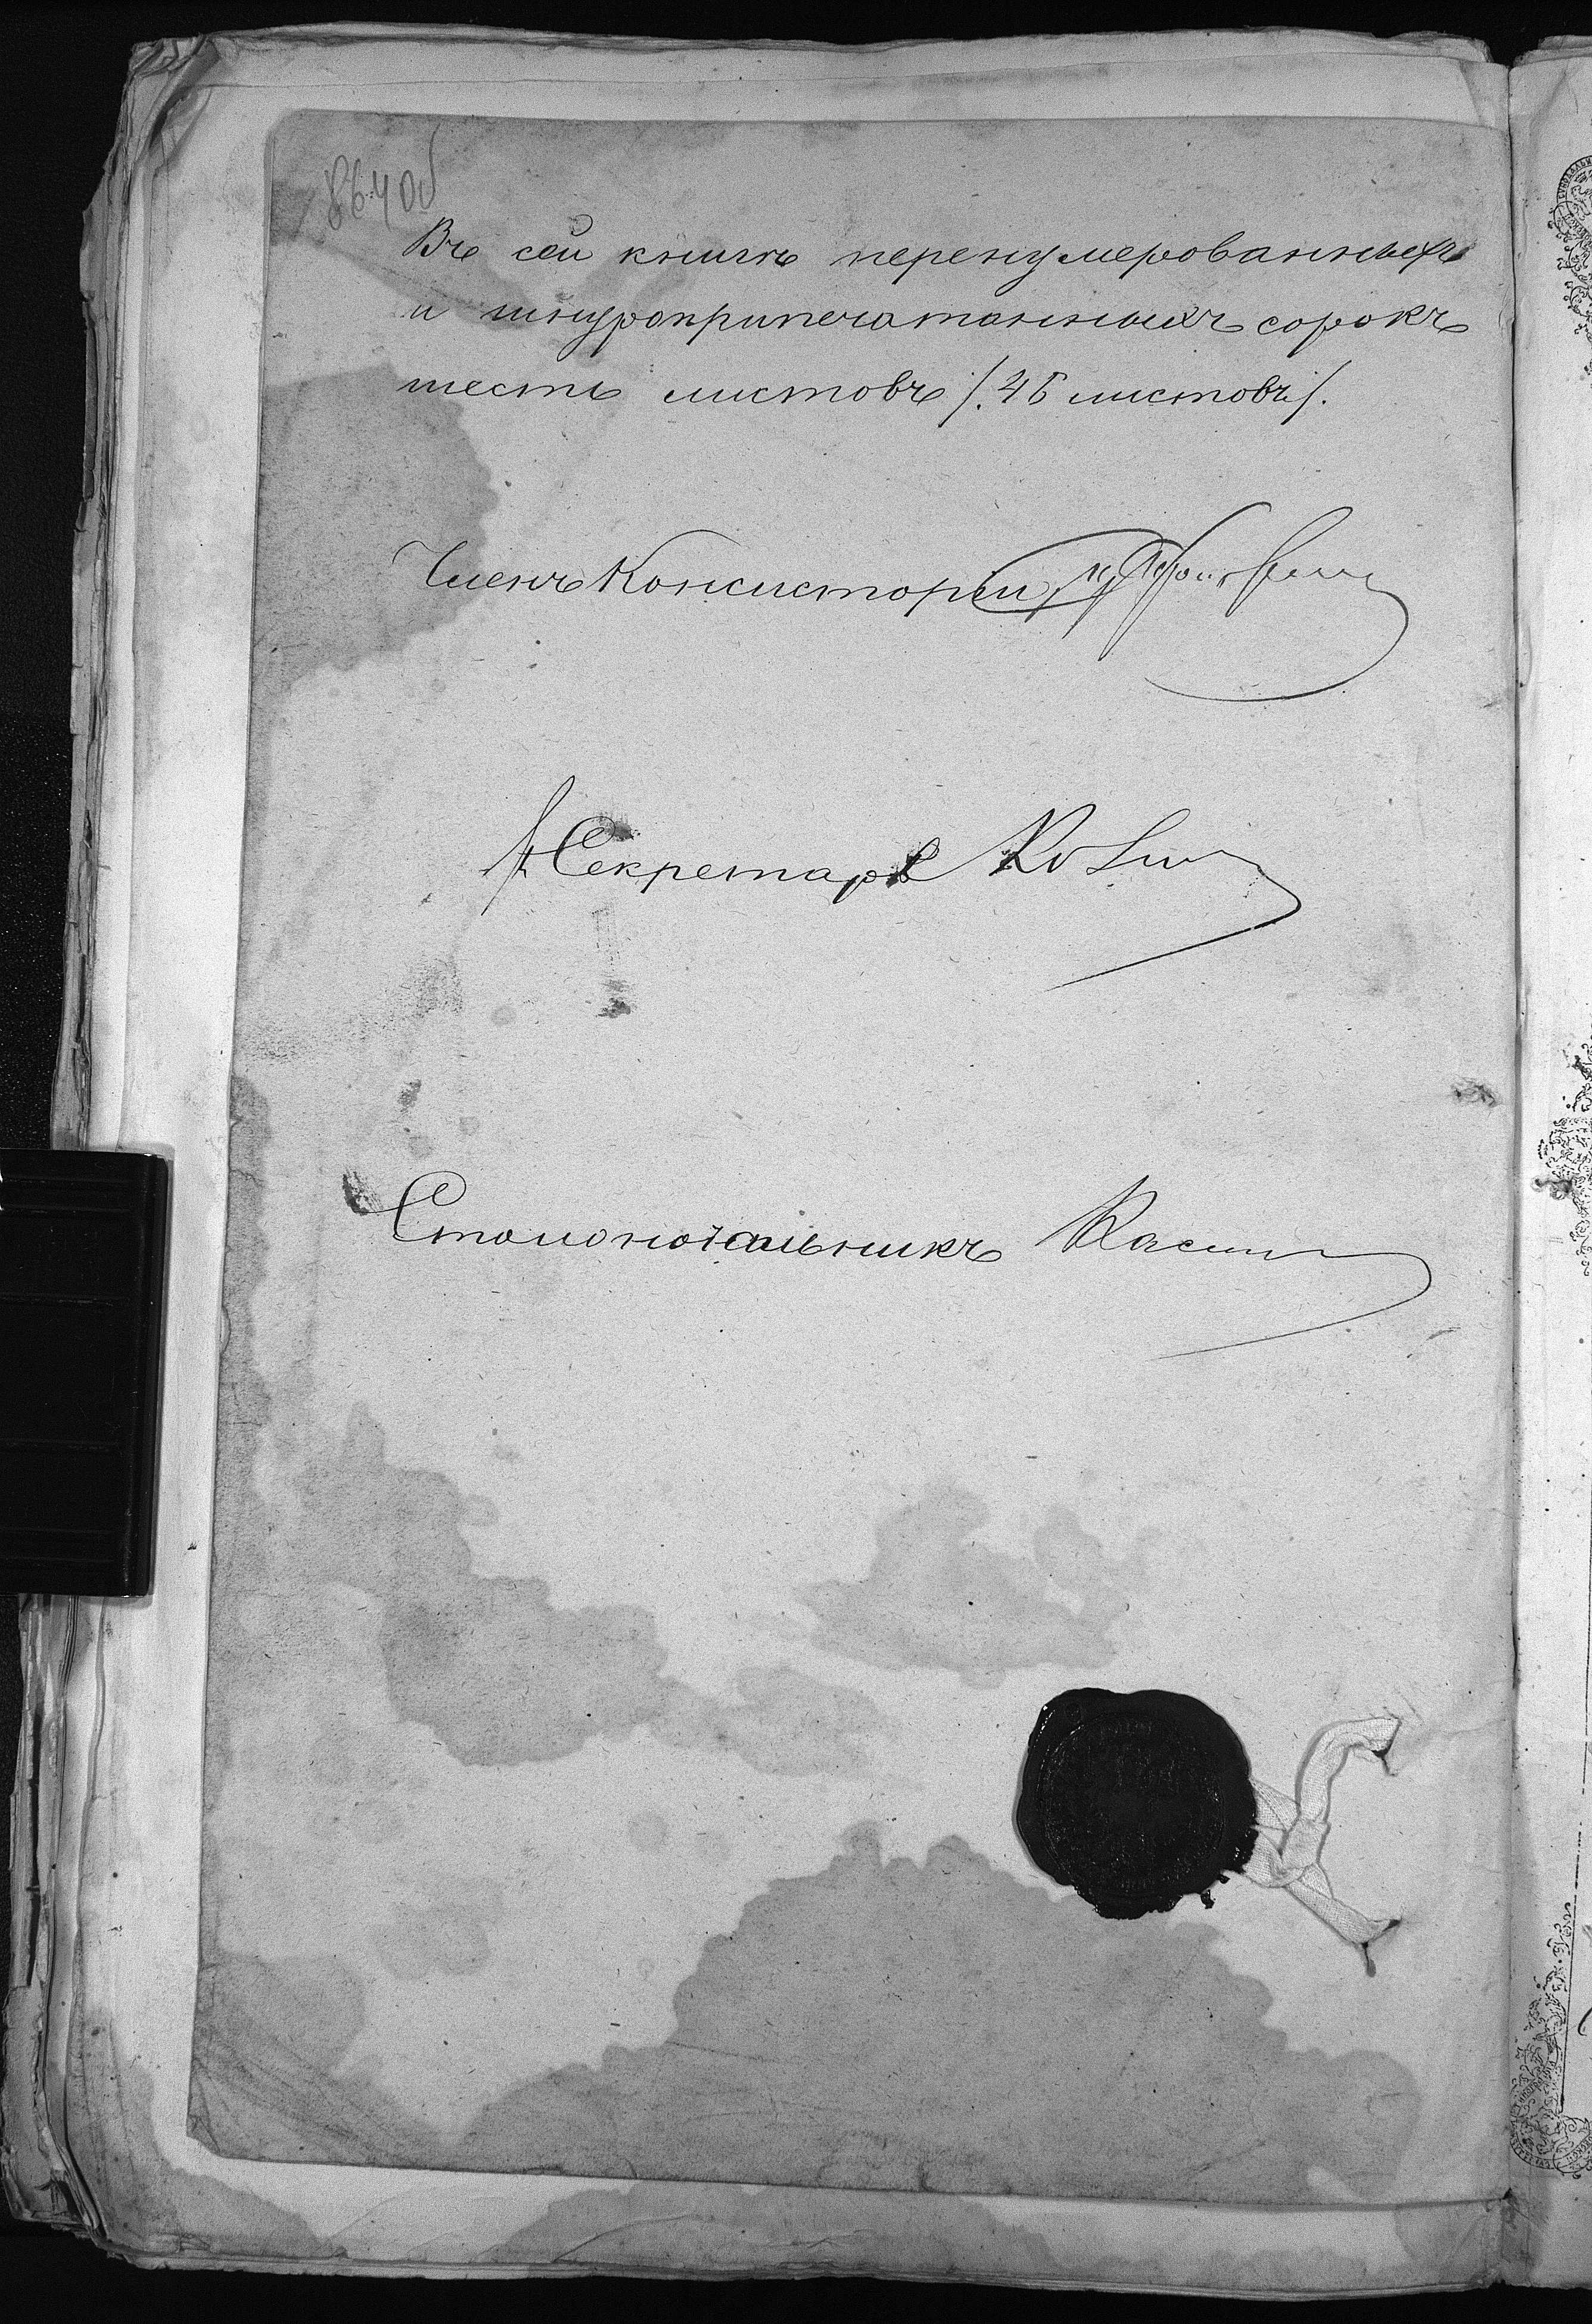 864об
Въ сей книгѣ перенумерованныхъ
и шнуроприпечатанныхъ сорокъ
шесть листовъ /. 46 листовъ /.
Членъ Консисторіи
Секретарь
Столоначальникъ